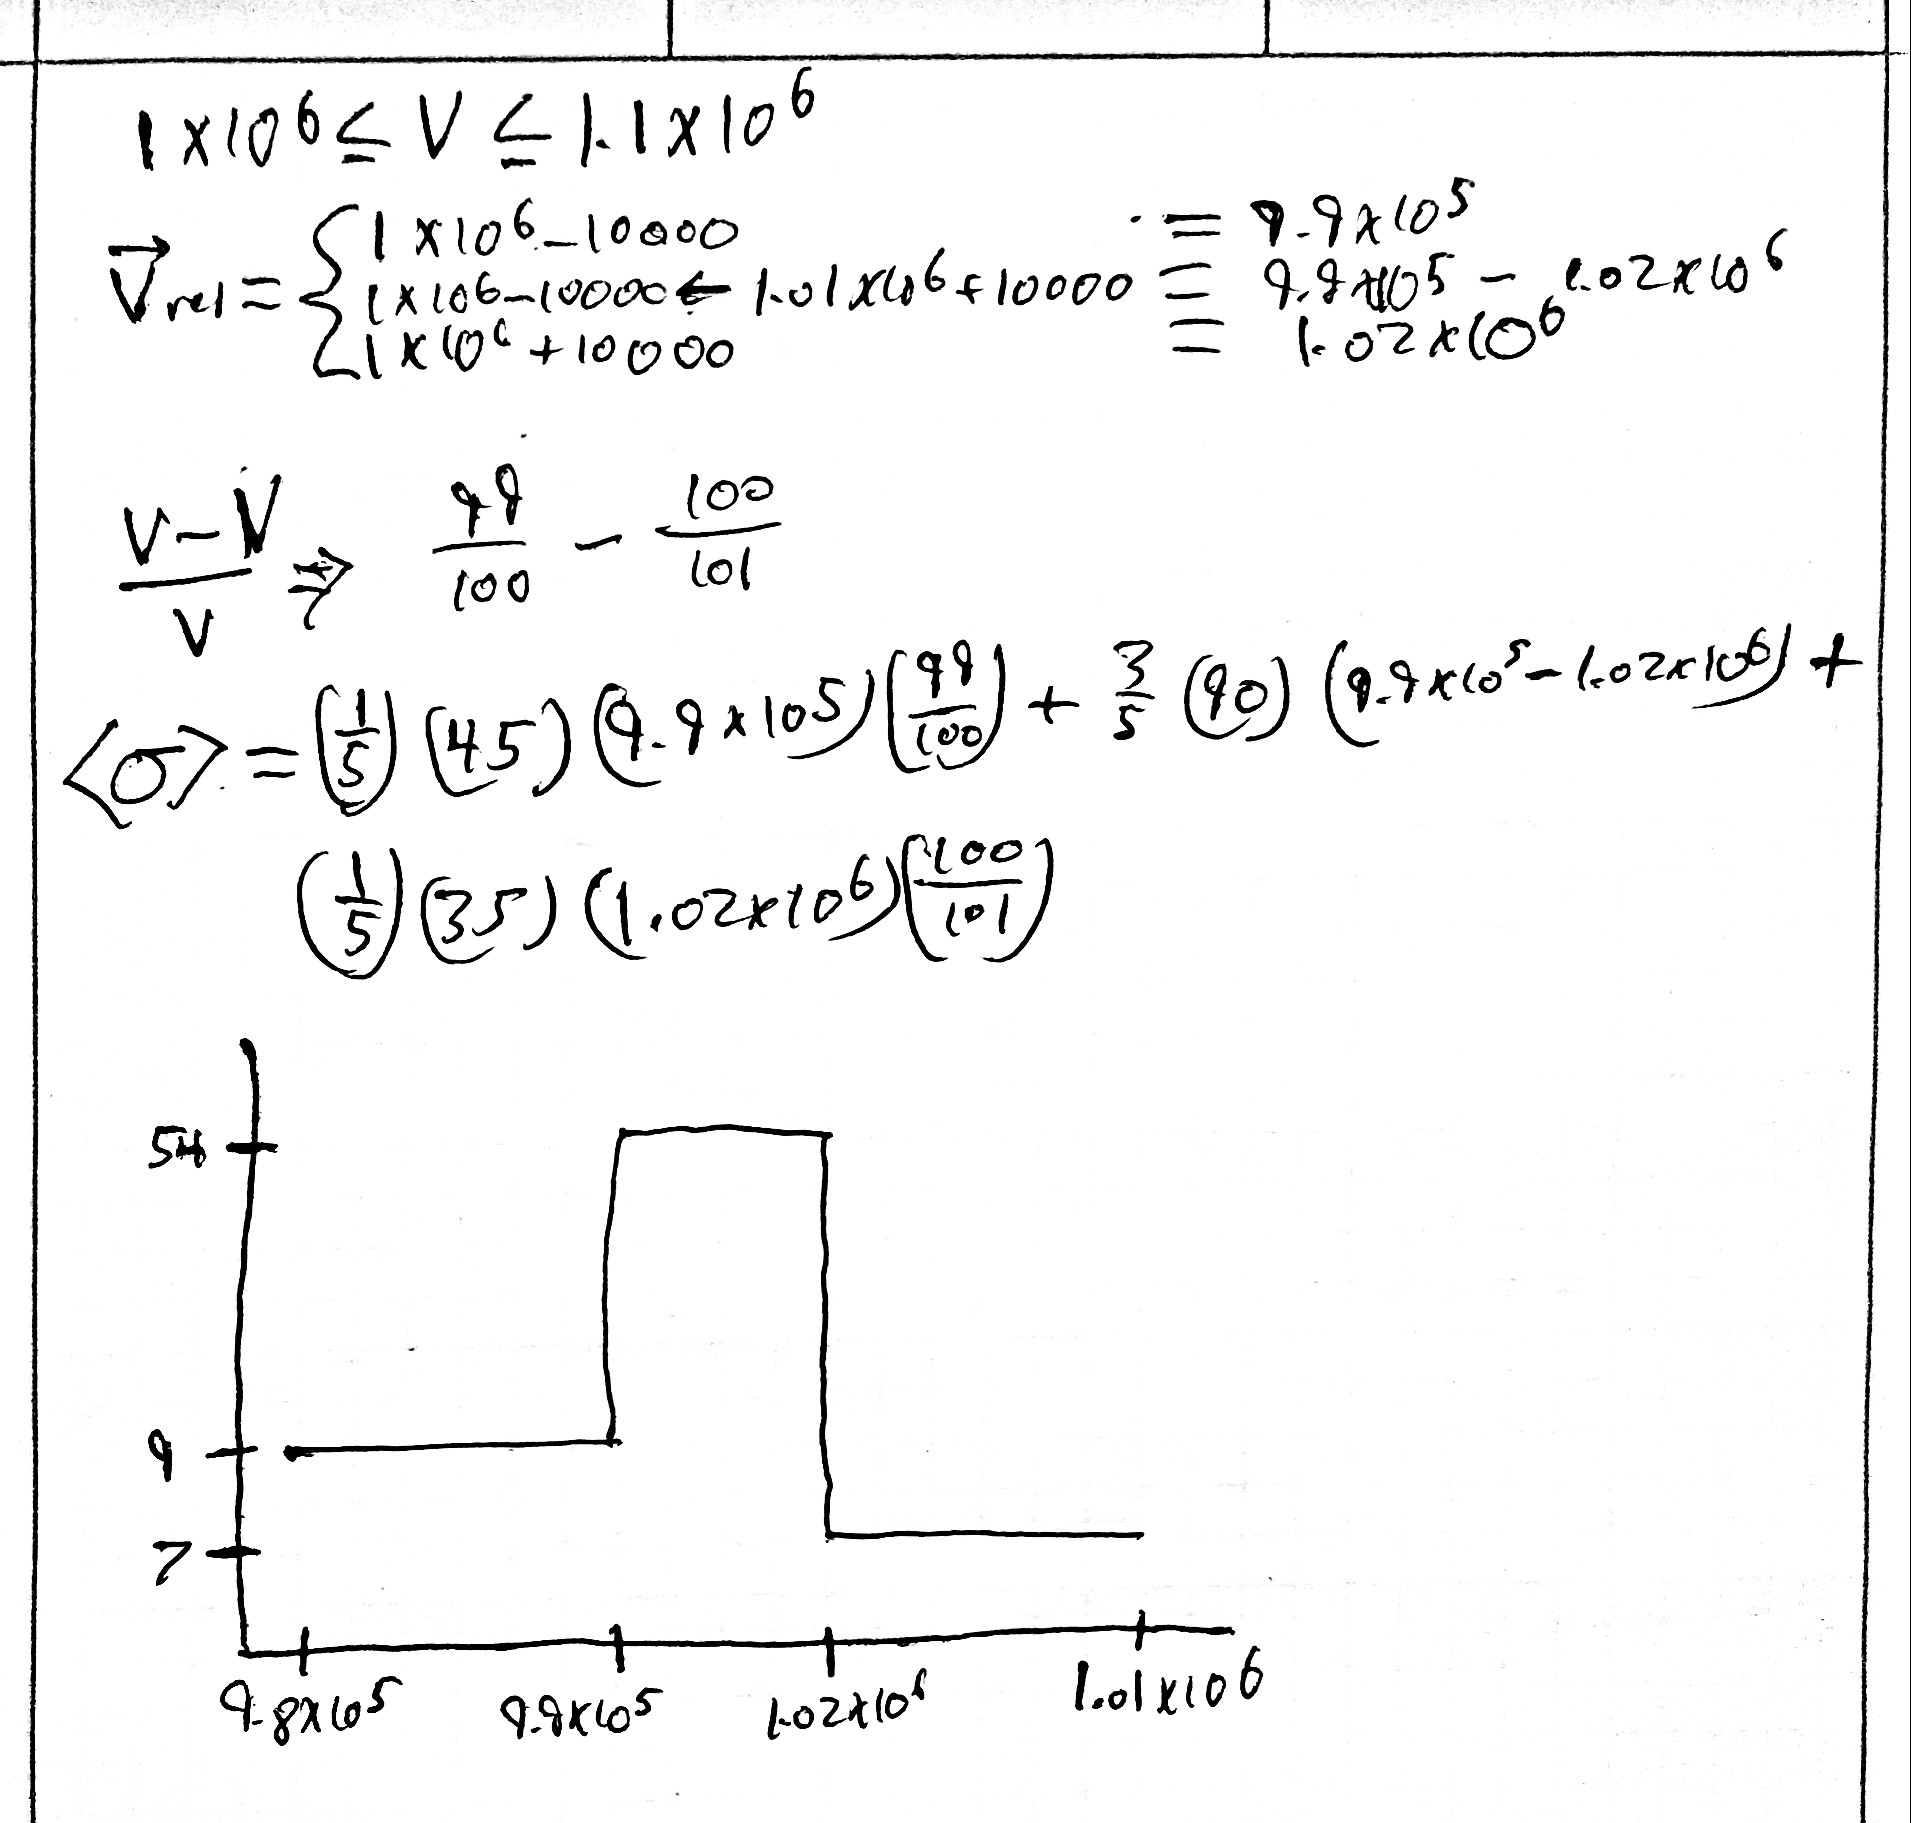 1 x 10^6 ≤ V ≤ 1.1 x 10^6
V⃗rel = { 1 x 10^6 - 10000 = 9.9 x 10^5
1 x 10^6 - 10000 ← 1.01 x 10^6 + 10000 = 9.9 x 10^5 - 1.02 x 10^6
1 x 10^6 + 10000 = 1.02 x 10^6
(V - V)/V ⇒ 99/100 - 100/101
<σ> = (1/5) (45) (9.9 x 10^5) (99/100) + 3/5 (90) (9.9 x 10^5 - 1.02 x 10^6) +
(1/5) (35) (1.02 x 10^6) (100/101)
54
9
7
9.8 x 10^5 9.9 x 10^5 1.02 x 10^6 1.01 x 10^6